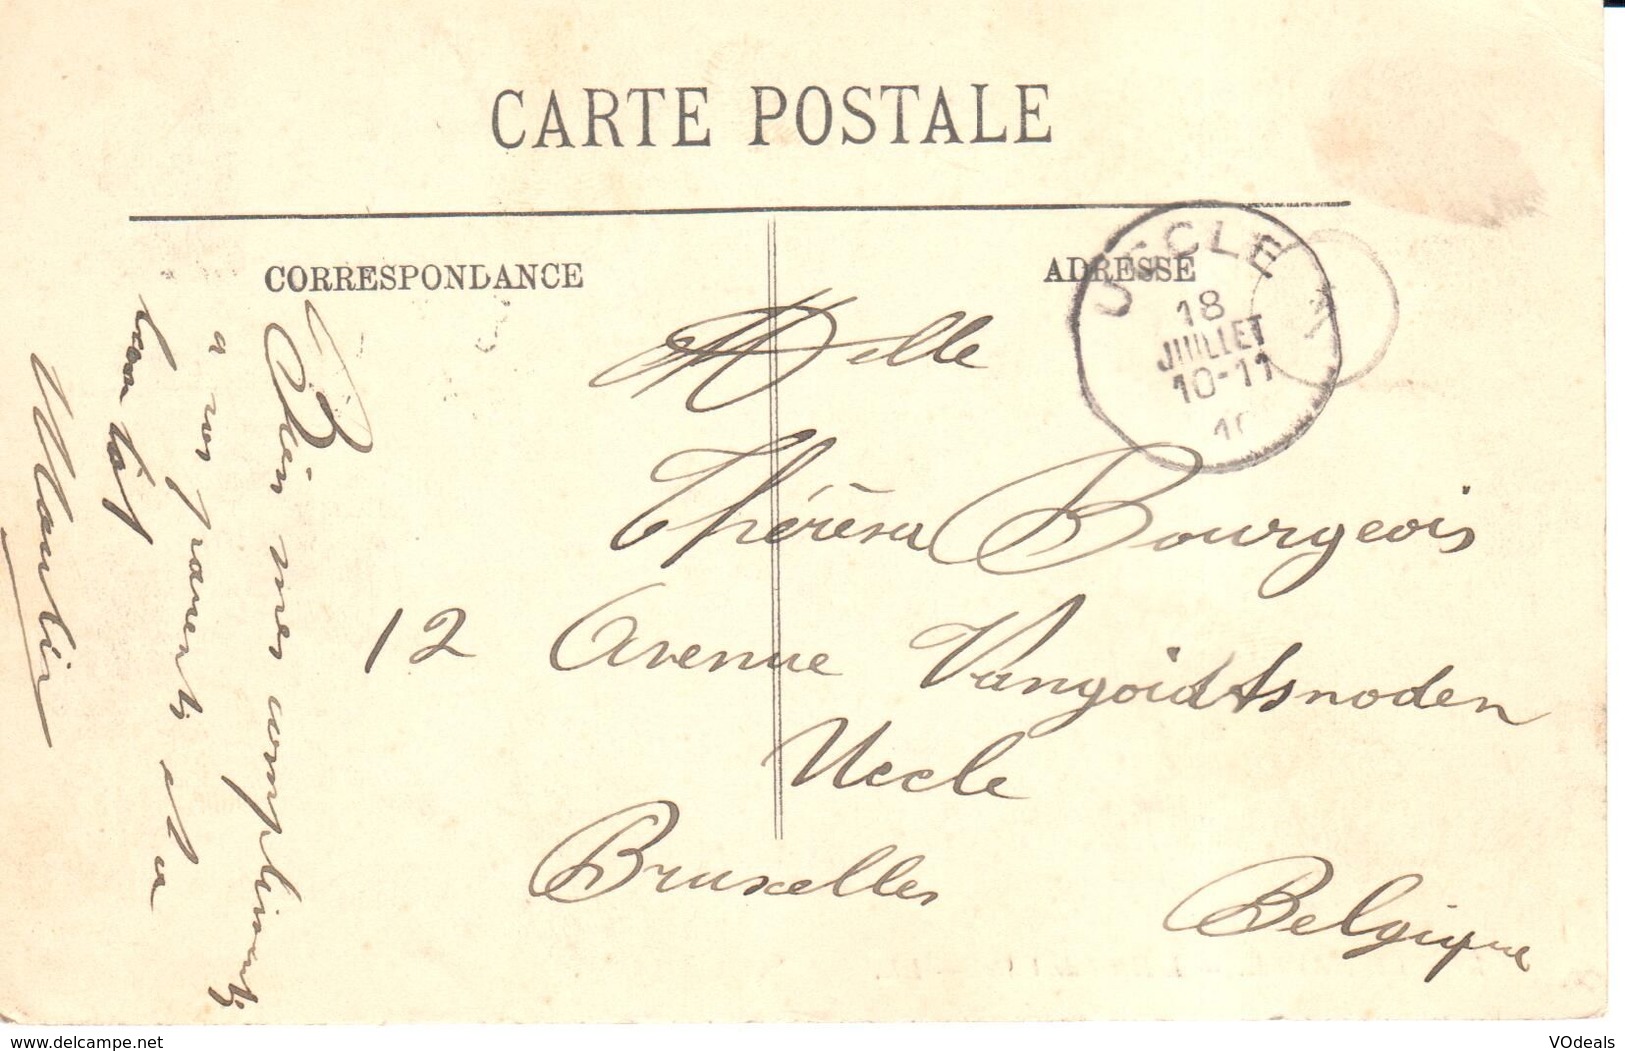 CARTE POSTALE
CORRESPONDANCE
ADRESSE
UCCLE
18
JUILLET
10-11
Melle
Thérésa Bourgeois
12 Avenue Vangoidtsnoden
Uccle
Bruxelles
Belgique
Bien mes compliments
à vos parents et a
bientôt
www.delcampe.net
VOdeals